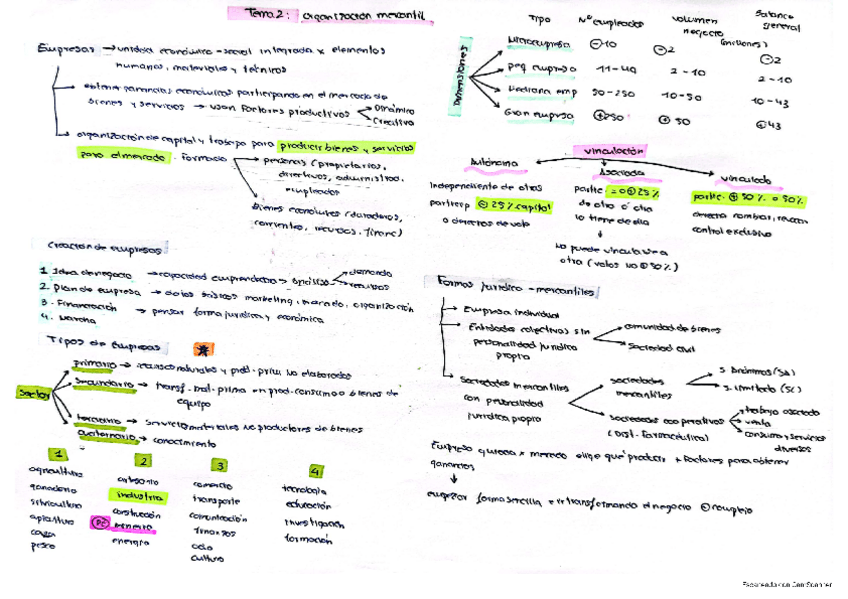 Tema 2: organización mercantil
Empresas → unidad económico-social integrada x elementos
humanos, materiales y técnicos
→ obtener ganancias económicas participando en el mercado de
bienes y servicios → usan factores productivos
Dinámica
Creativa
→ organización de capital y trabajo para producir bienes y servicios
para el mercado. Formado
→ personas (propietarios,
directivos, administrat.
empleados
bienes económicos (duraderos,
corrientes, recursos financ)
Creación de empresas
1. Idea de negocio → capacidad emprendedora → análisis
demanda
recursos
2. Plan de empresa → datos básicos marketing, mercado, organización
3. Financiación → pensar forma jurídica y económica
4. Marcha
Tipos de empresas
Sector
primario → recursos naturales y prod. prim. no elaborados
secundario → transf. mat. prima en prod. consumo o bienes de
equipo
terciario → servicios materiales no productores de bienes
cuaternario → conocimiento
1
agricultura
ganadería
silvicultura
apicultura
caza
pesca
2
artesanía
industria
construcción
minería
energía
3
comercio
transporte
comunicación
finanzas
ocio
cultura
4
tecnología
educación
investigación
formación
Dimensiones
Tipo Nº empleados volumen negocio Balance general
(millones)
Microempresa -10 -2 -2
peq empresa 11-49 2-10 2-10
Mediana emp 50-250 10-50 10-43
Gran empresa +250 +50 +43
vinculación
Autónoma
Independiente de otras
particep - 25% capital
o derechos de voto
Asociada
partic. = o + 25%
de otra ó otra
lo tiene de ella
↓
No puede vincularse a
otra (votos no + 50%)
vinculada
partic. + 50% o 50%
derecho nombrar,
control exclusivo
Formas jurídico-mercantiles
→ Empresa individual
→ Entidades colectivas sin
personalidad jurídica
propia
→ comunidad de bienes
→ Sociedad civil
→ Sociedades mercantiles
con personalidad
jurídica propia
sociedades
mercantiles
S. Anónimas (SA)
S. Limitada (SL)
sociedades cooperativas
(Dist. Farmacéutica)
trabajo asociado
venta
consumo y servicios
diversos
Empresa x mercado elige qué producir + factores para obtener
ganancias
↓
empezar forma sencilla e ir transformando el negocio + complejo
Escaneado con CamScanner